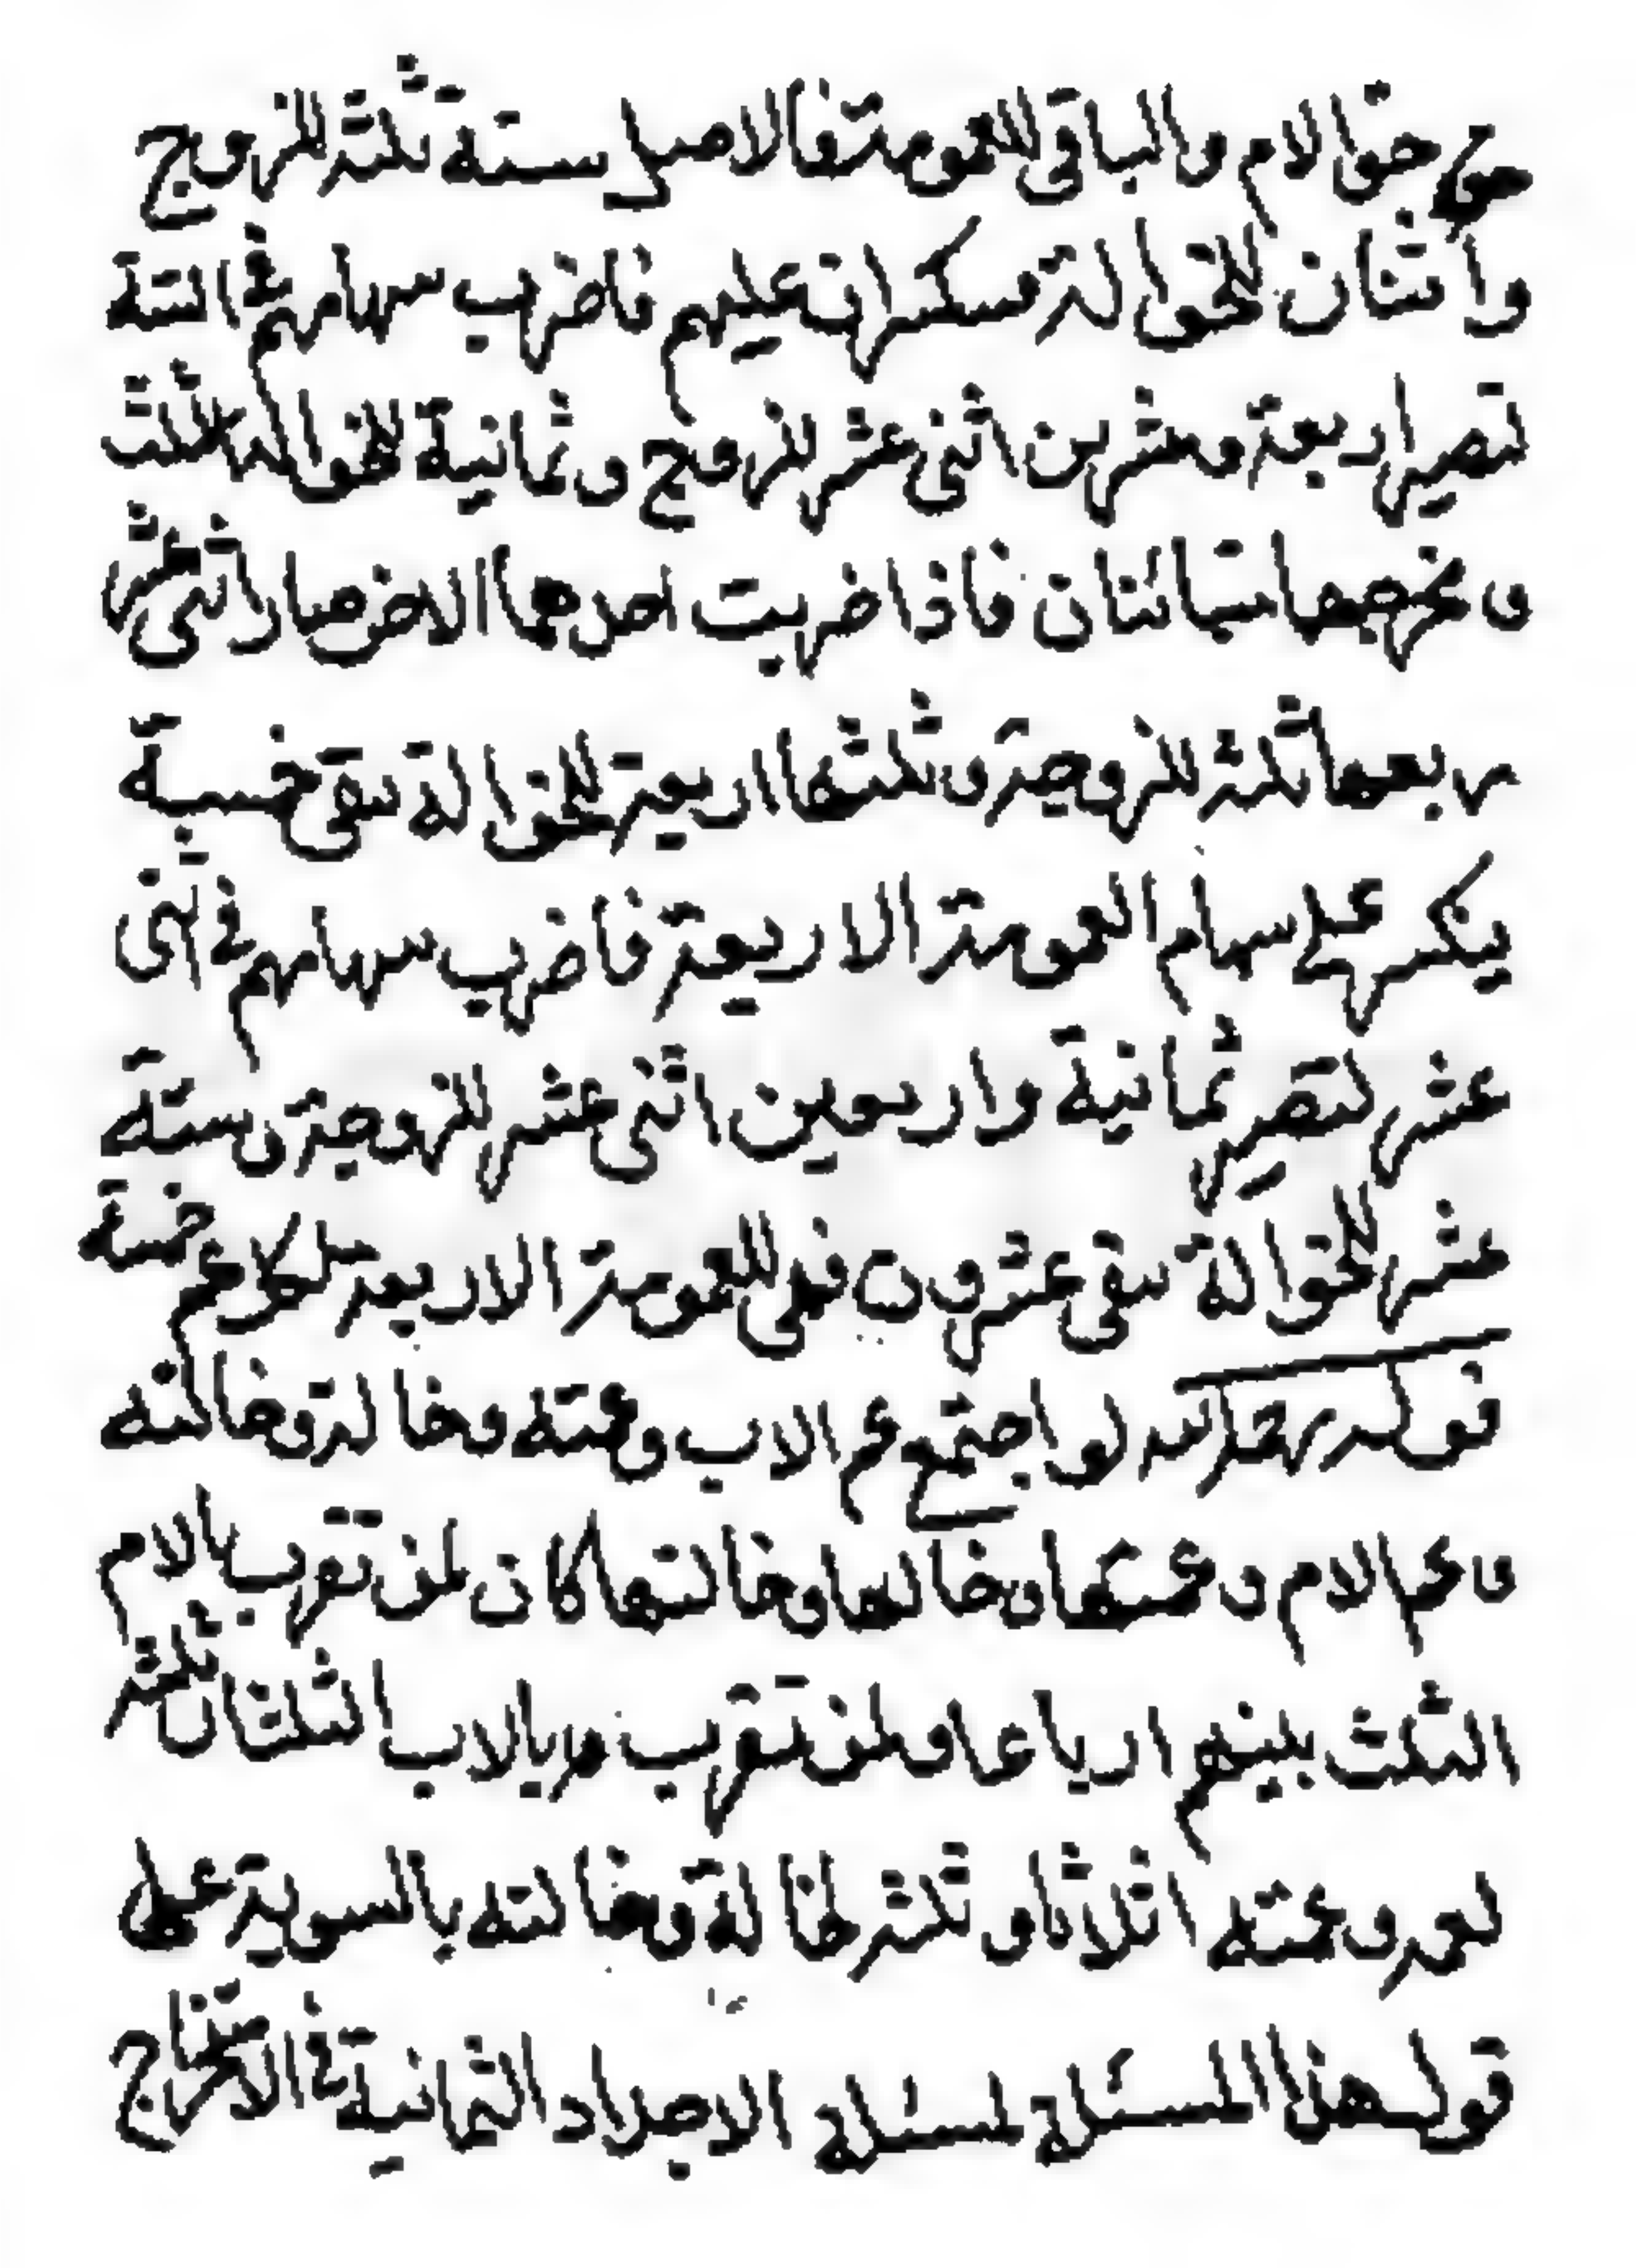 حق الام والباقى للعمومة فالاصل ستة ثلثة للزوج
واثنان للخوالة منكسران عليهم فاضرب سهامهم في الستة
تصير اربعة وعشرين اثنى عشر للزوج وثمانية للخوالة الثلث
ومخرجهما متباينان فاذا ضربت احدهما الاخر صار اثنى عشر
ربعها ثلثة للزوجة وثلثها اربعة للخوالة تبقى خمسة
ينكسر على سهام العمومة الاربعة فاضرب سهامهم في اثنى
عشر لتصير ثمانية واربعين اثنى عشر للزوجة وستة
عشر للخوالة تبقى عشرون فهى للعمومة الاربعة لكل عم خمسة
قوله رحمه الله لو اجتمع عم الاب وعمته وخاله وخالته
وعم الام وعمتها وخالها وخالتها كان لمن تقرب بالام
الثلث بينهم ارباعا ولمن تقرب بالاب الثلثان ثلثه
لعمه وعمته اثلاثا وثلثه لخاله وخالته بالسوية على
قول هذا المسئلة لمسئلة الاجداد الثمانية في الاخراج